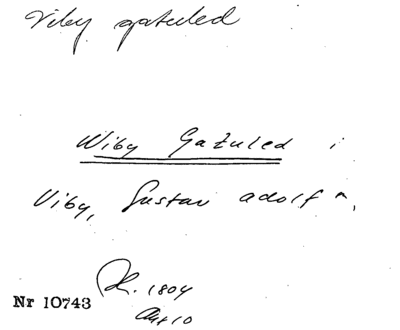 Viby gatuled
Wiby Gatuled i
Viby, Gustav adolf
R. 1804
Nr 10743
Akt 10